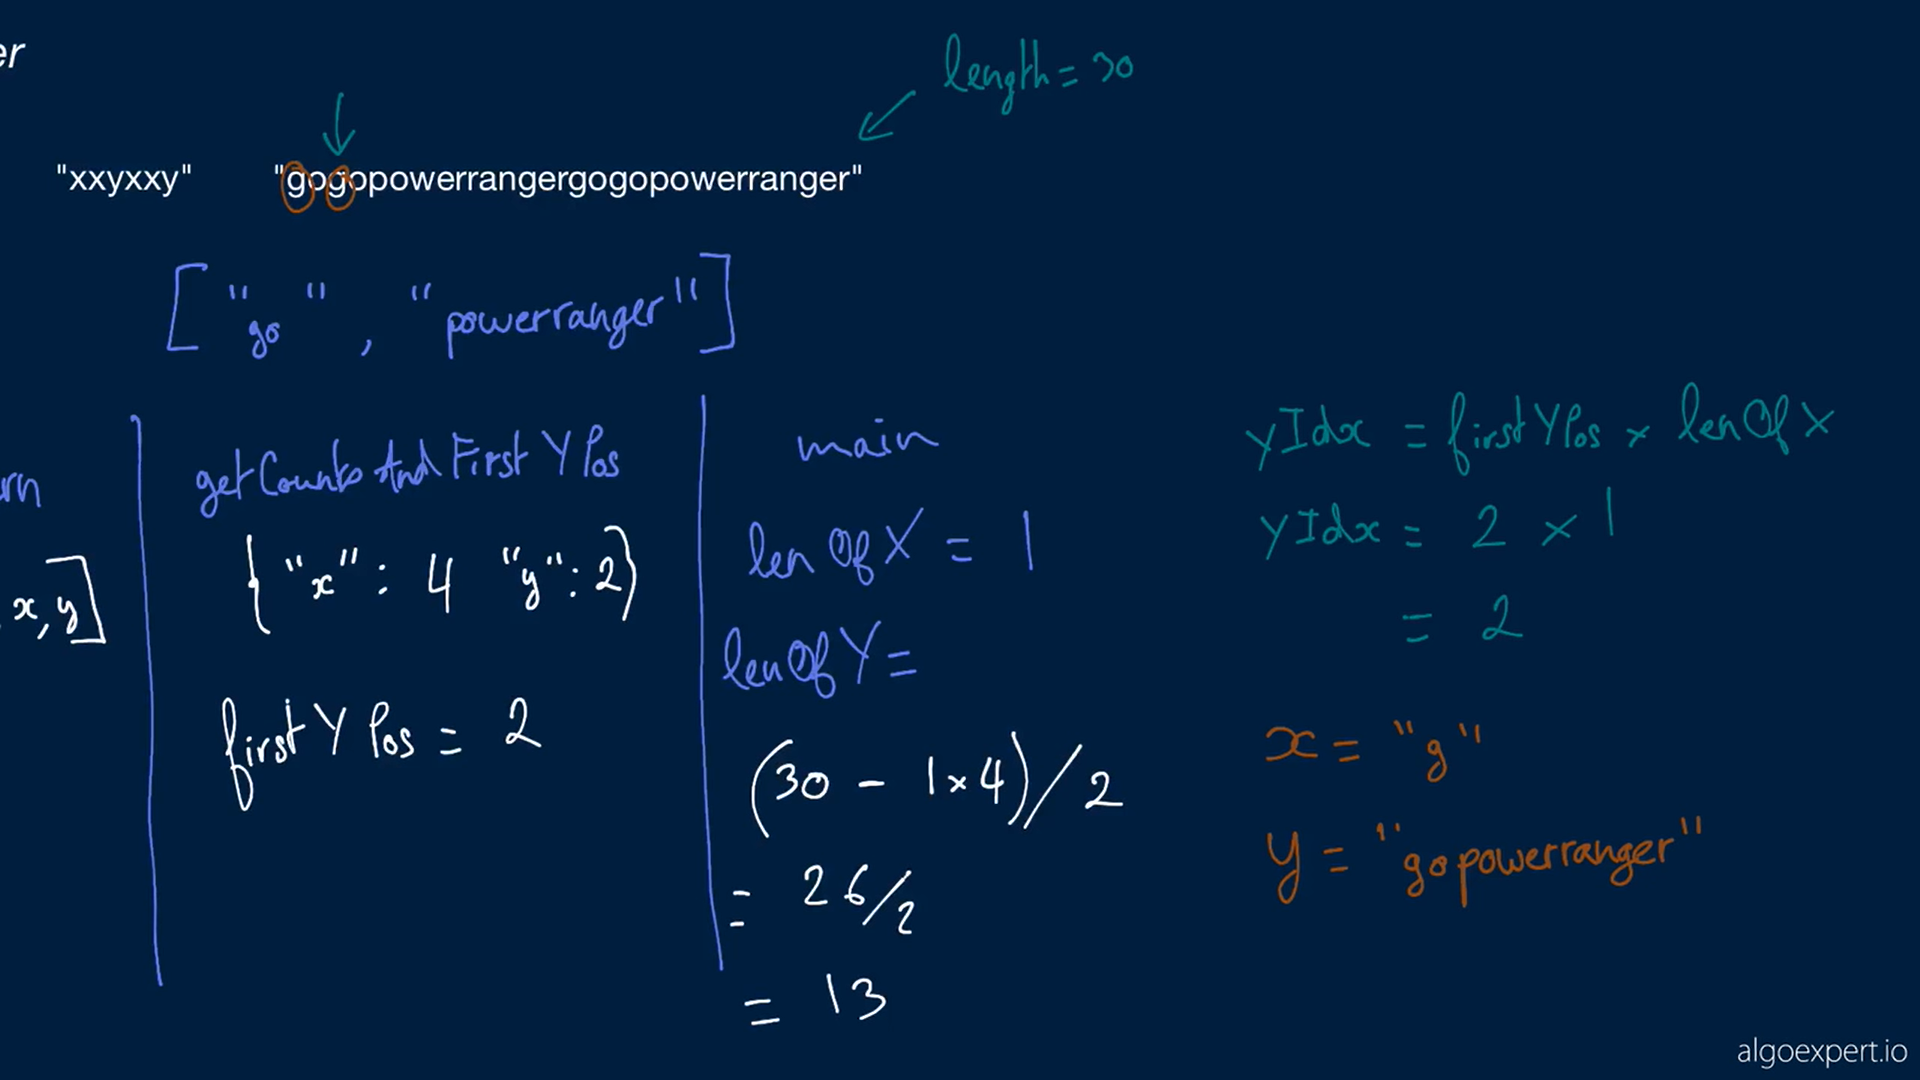 er
length = 30
"xxyxxy" "gogopowerrangergogopowerranger"
[ "go" , "powerranger" ]
rn
x, y]
getCountsAndFirstYPos
{ "x" : 4 "y" : 2}
firstYPos = 2
main
lenOfX = 1
lenOfY =
(30 - 1×4)/2
= 26/2
= 13
yIdx = firstYPos × lenOfX
yIdx = 2 × 1
= 2
x = "g"
y = "gopowerranger"
algoexpert.io